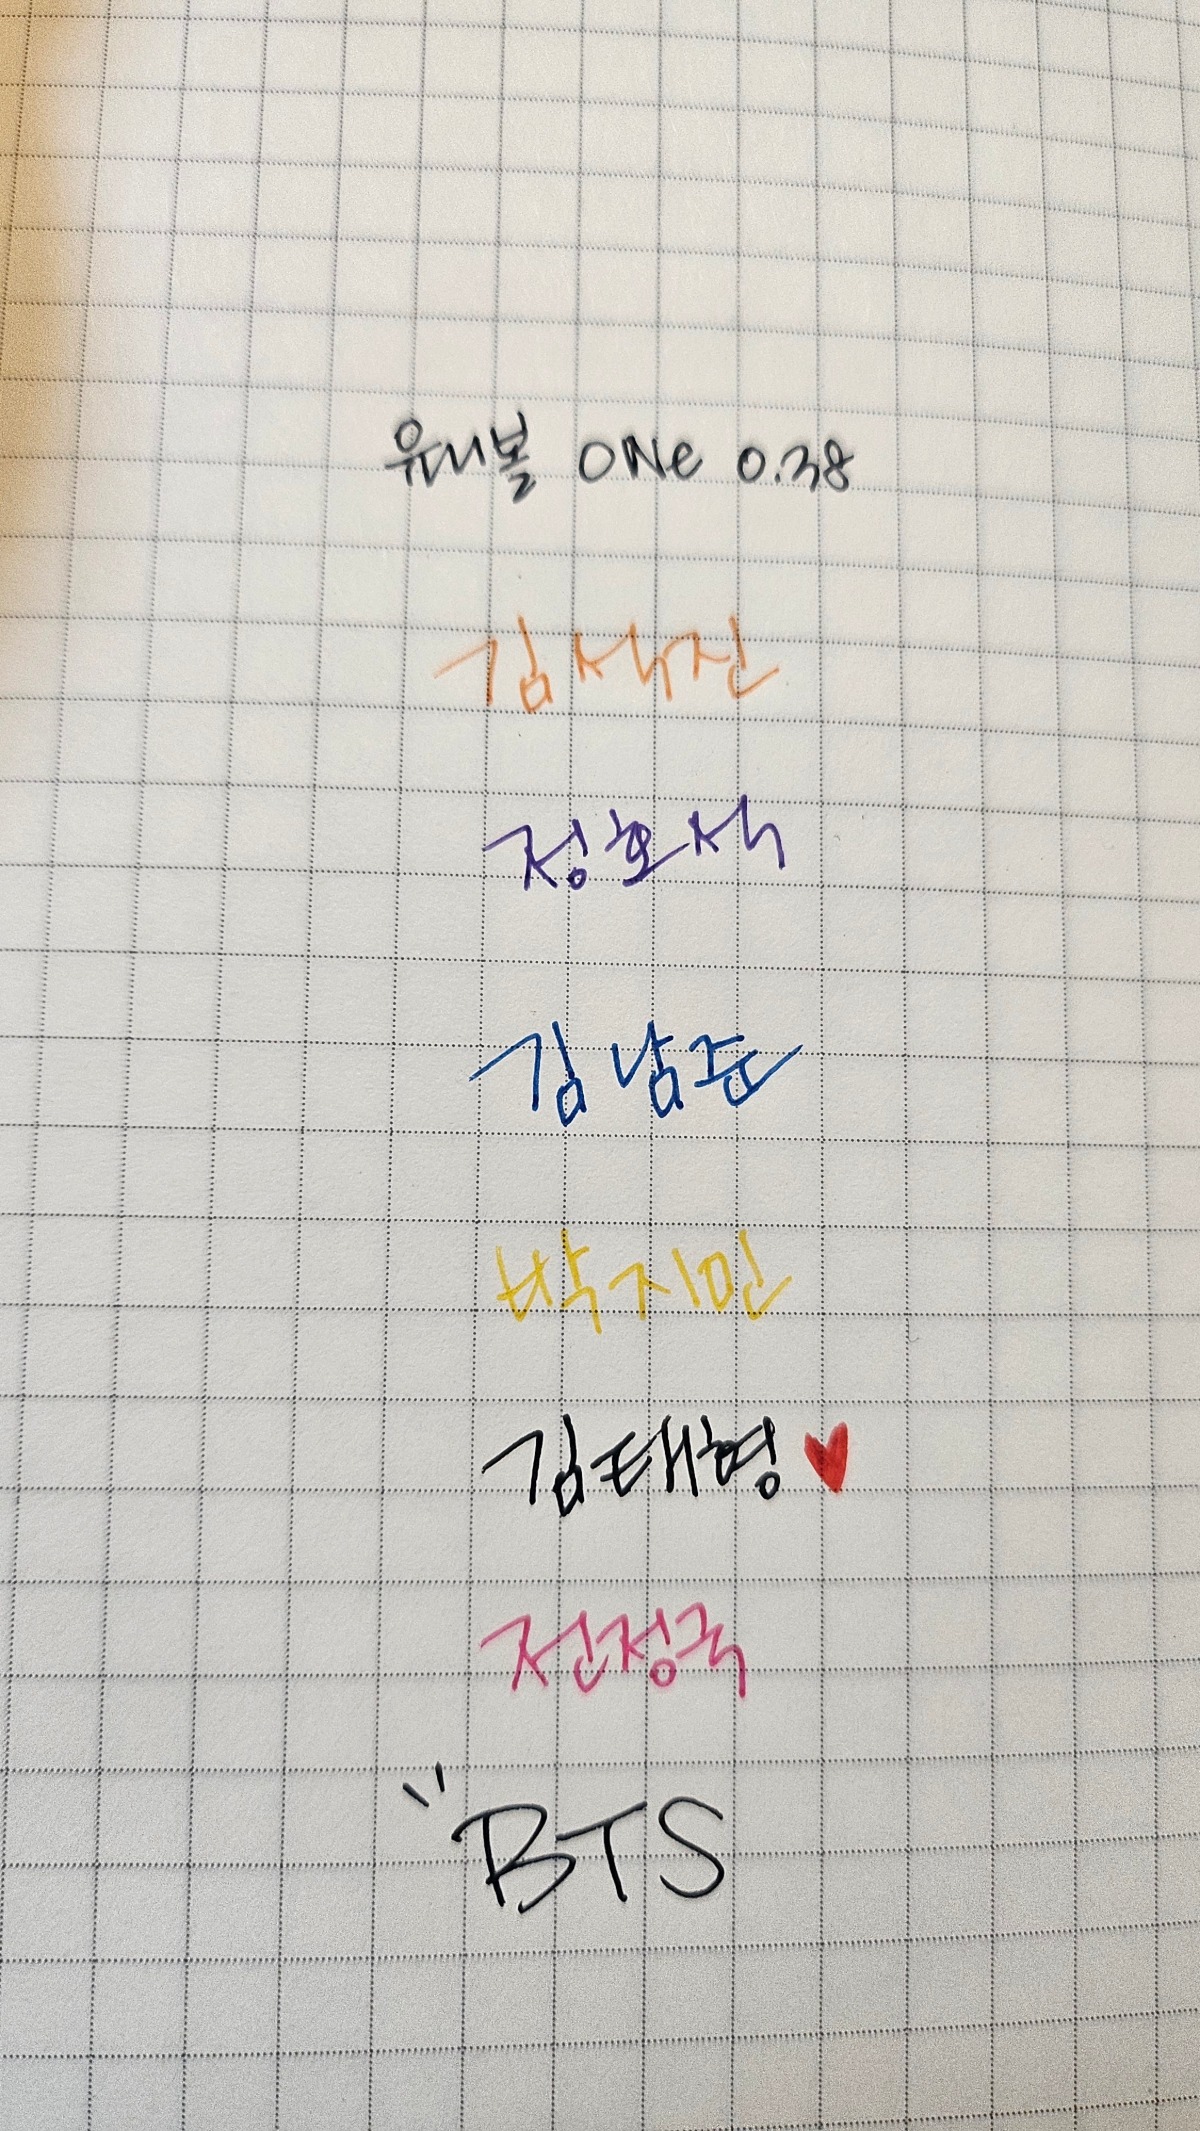 유니볼 ONe 0.38
김석진
정호석
김남준
박지민
김태형♥
전정국
"BTS